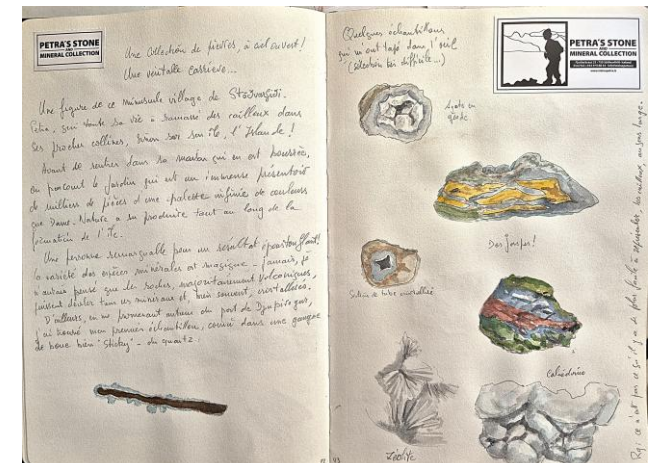 PETRA'S STONE
AND
MINERAL COLLECTION
Une Collection de pierres, à ciel ouvert !
Une véritable carrière...
Une figure de ce minuscule village de
Petra, qui toute sa vie a ramassé des cailloux dans
les proches collines, sinon sur son île, l'Islande !
Avant de rentrer dans sa maison qui en est
on parcourt le jardin qui est un immense présentoir
de milliers de pièces d'une palette infinie de couleurs
que Dame Nature a su produire tout au long de la
formation de l'île.
Une personne remarquable pour un résultat époustouflant !
la variété des espèces minérales est magique - jamais, je
n'aurais pensé que de roches, majoritairement volcaniques,
puissent dériver tant de minéraux et, bien souvent, cristallisés.
D'ailleurs, en me promenant autour du port de Djupivogur,
j'ai trouvé mon premier échantillon, coincé dans une gangue
de boue bien "sticky" - du quartz.
Quelques échantillons
qui m'ont tapé dans l'œil
(sélection très difficile...)
PETRA'S STONE
AND
MINERAL COLLECTION
géode
Des Jaspes !
Section de tube cristallisé
Calcédoine
Zéolite
ce n'est pas ce qu'il y a de plus facile à représenter, les cailloux, au sens large.